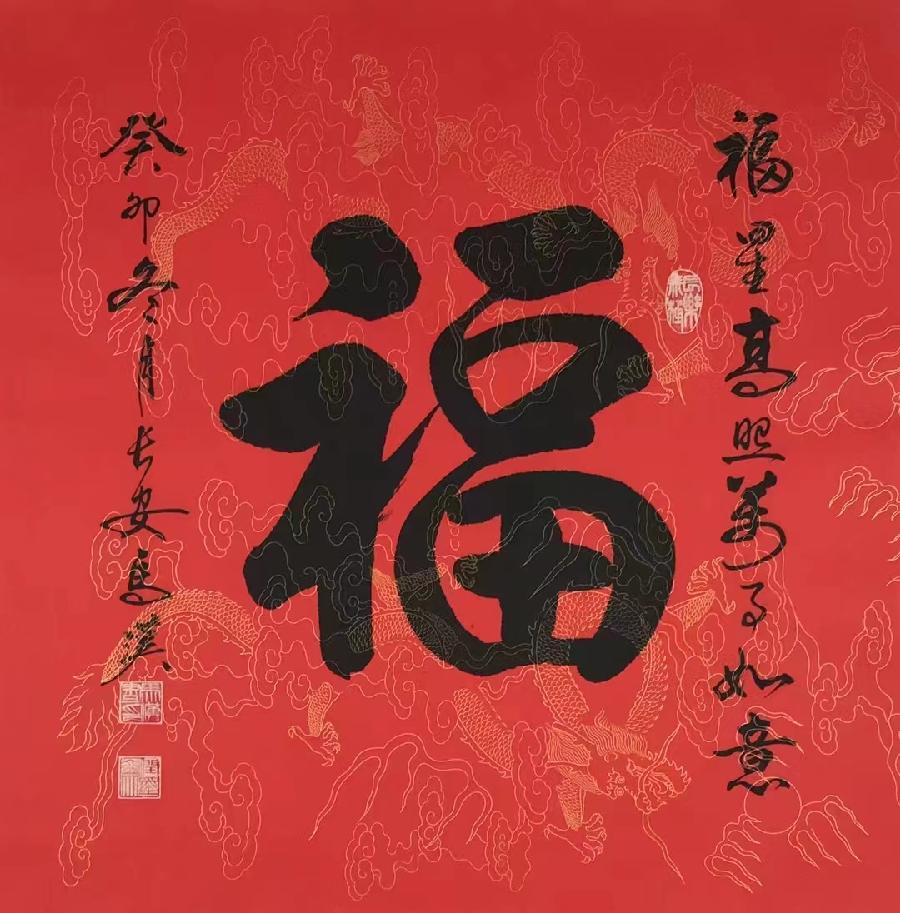 福星高照萬事如意
福
癸卯冬月長安